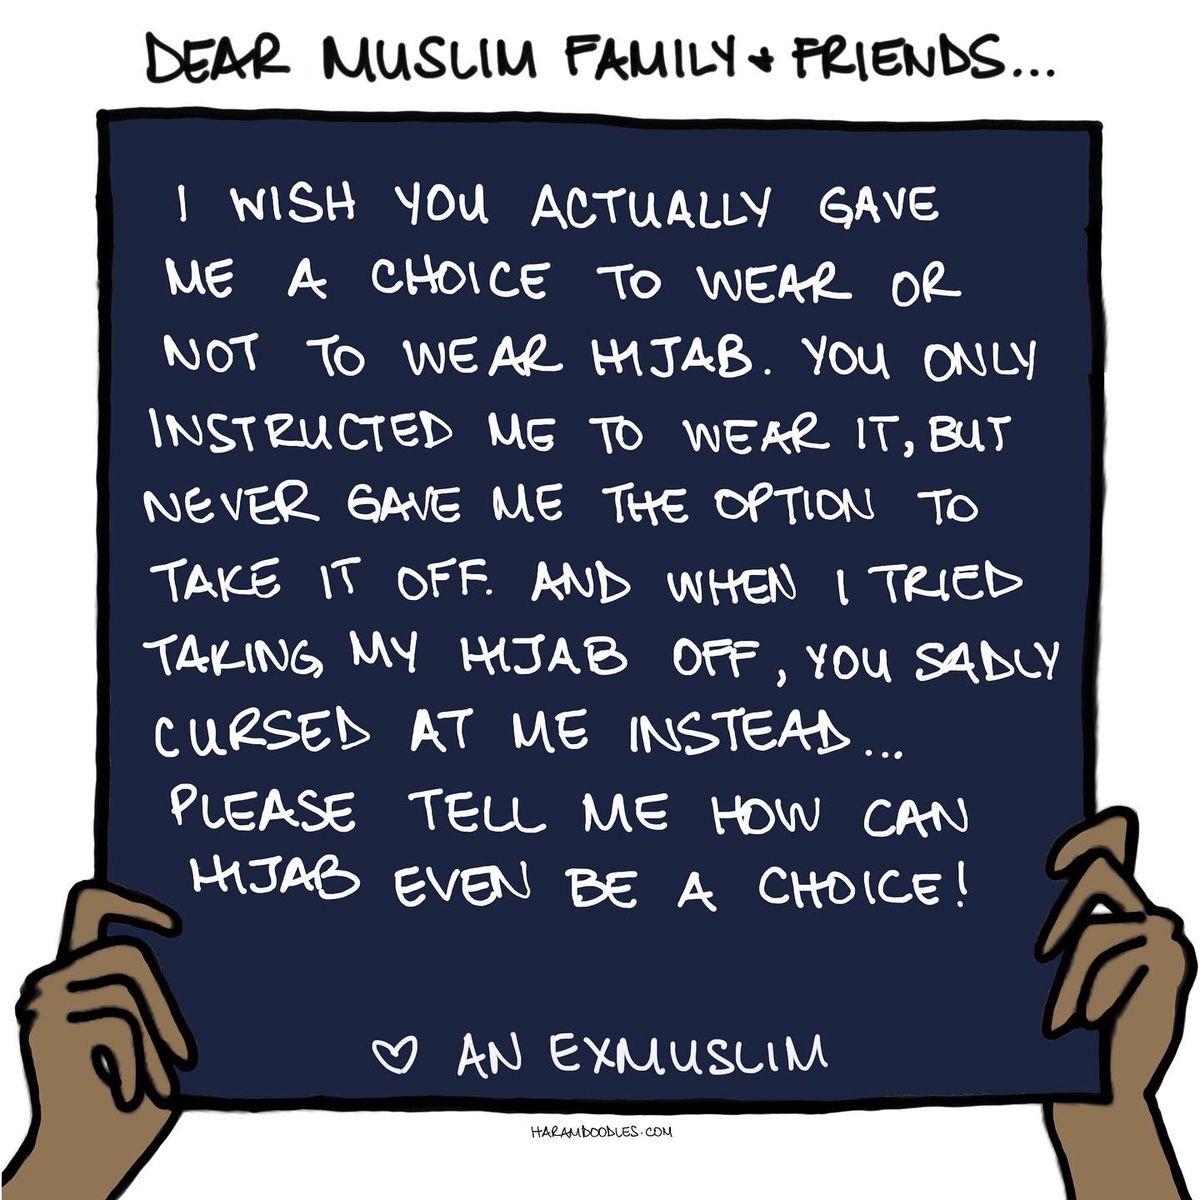 DEAR MUSLIM FAMILY + FRIENDS...
I WISH YOU ACTUALLY GAVE
ME A CHOICE TO WEAR OR
NOT TO WEAR HIJAB. YOU ONLY
INSTRUCTED ME TO WEAR IT, BUT
NEVER GAVE ME THE OPTION TO
TAKE IT OFF. AND WHEN I TRIED
TAKING MY HIJAB OFF, YOU SADLY
CURSED AT ME INSTEAD...
PLEASE TELL ME HOW CAN
HIJAB EVEN BE A CHOICE!
♡ AN EXMUSLIM
HARAMDOODLES.COM